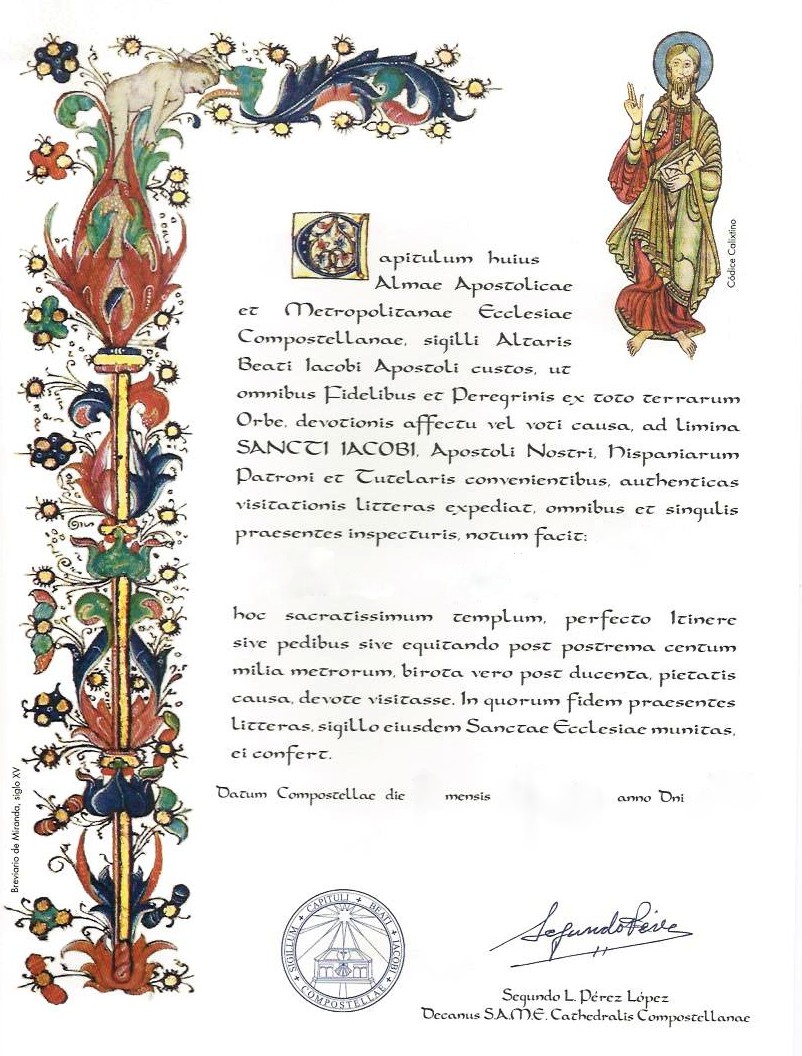 Capitulum huius
Almae Apostolicae
et Metropolitanae Ecclesiae
Compostellanae, sigilli Altaris
Beati Iacobi Apostoli custos, ut
omnibus Fidelibus et Peregrinis ex toto terrarum
Orbe, devotionis affectu vel voti causa, ad limina
SANCTI IACOBI, Apostoli Nostri, Hispaniarum
Patroni et Tutelaris convenientibus, authenticas
visitationis litteras expediat, omnibus et singulis
praesentes inspecturis, notum facit:
hoc sacratissimum templum, perfecto Itinere
sive pedibus sive equitando post postrema centum
milia metrorum, birota vero post ducenta, pietatis
causa, devote visitasse. In quorum fidem praesentes
litteras, sigillo eiusdem Sanctae Ecclesiae munitas,
ei confert.
Datum Compostellae die mensis anno Dni
SIGILLUM + CAPITULI + BEATI + IACOBI + COMPOSTELLAE +
Segundo Pérez
Segundo L. Pérez López
Decanus S.A.M.E. Cathedralis Compostellanae
Códice Calixtino
Breviario de Miranda, siglo XV